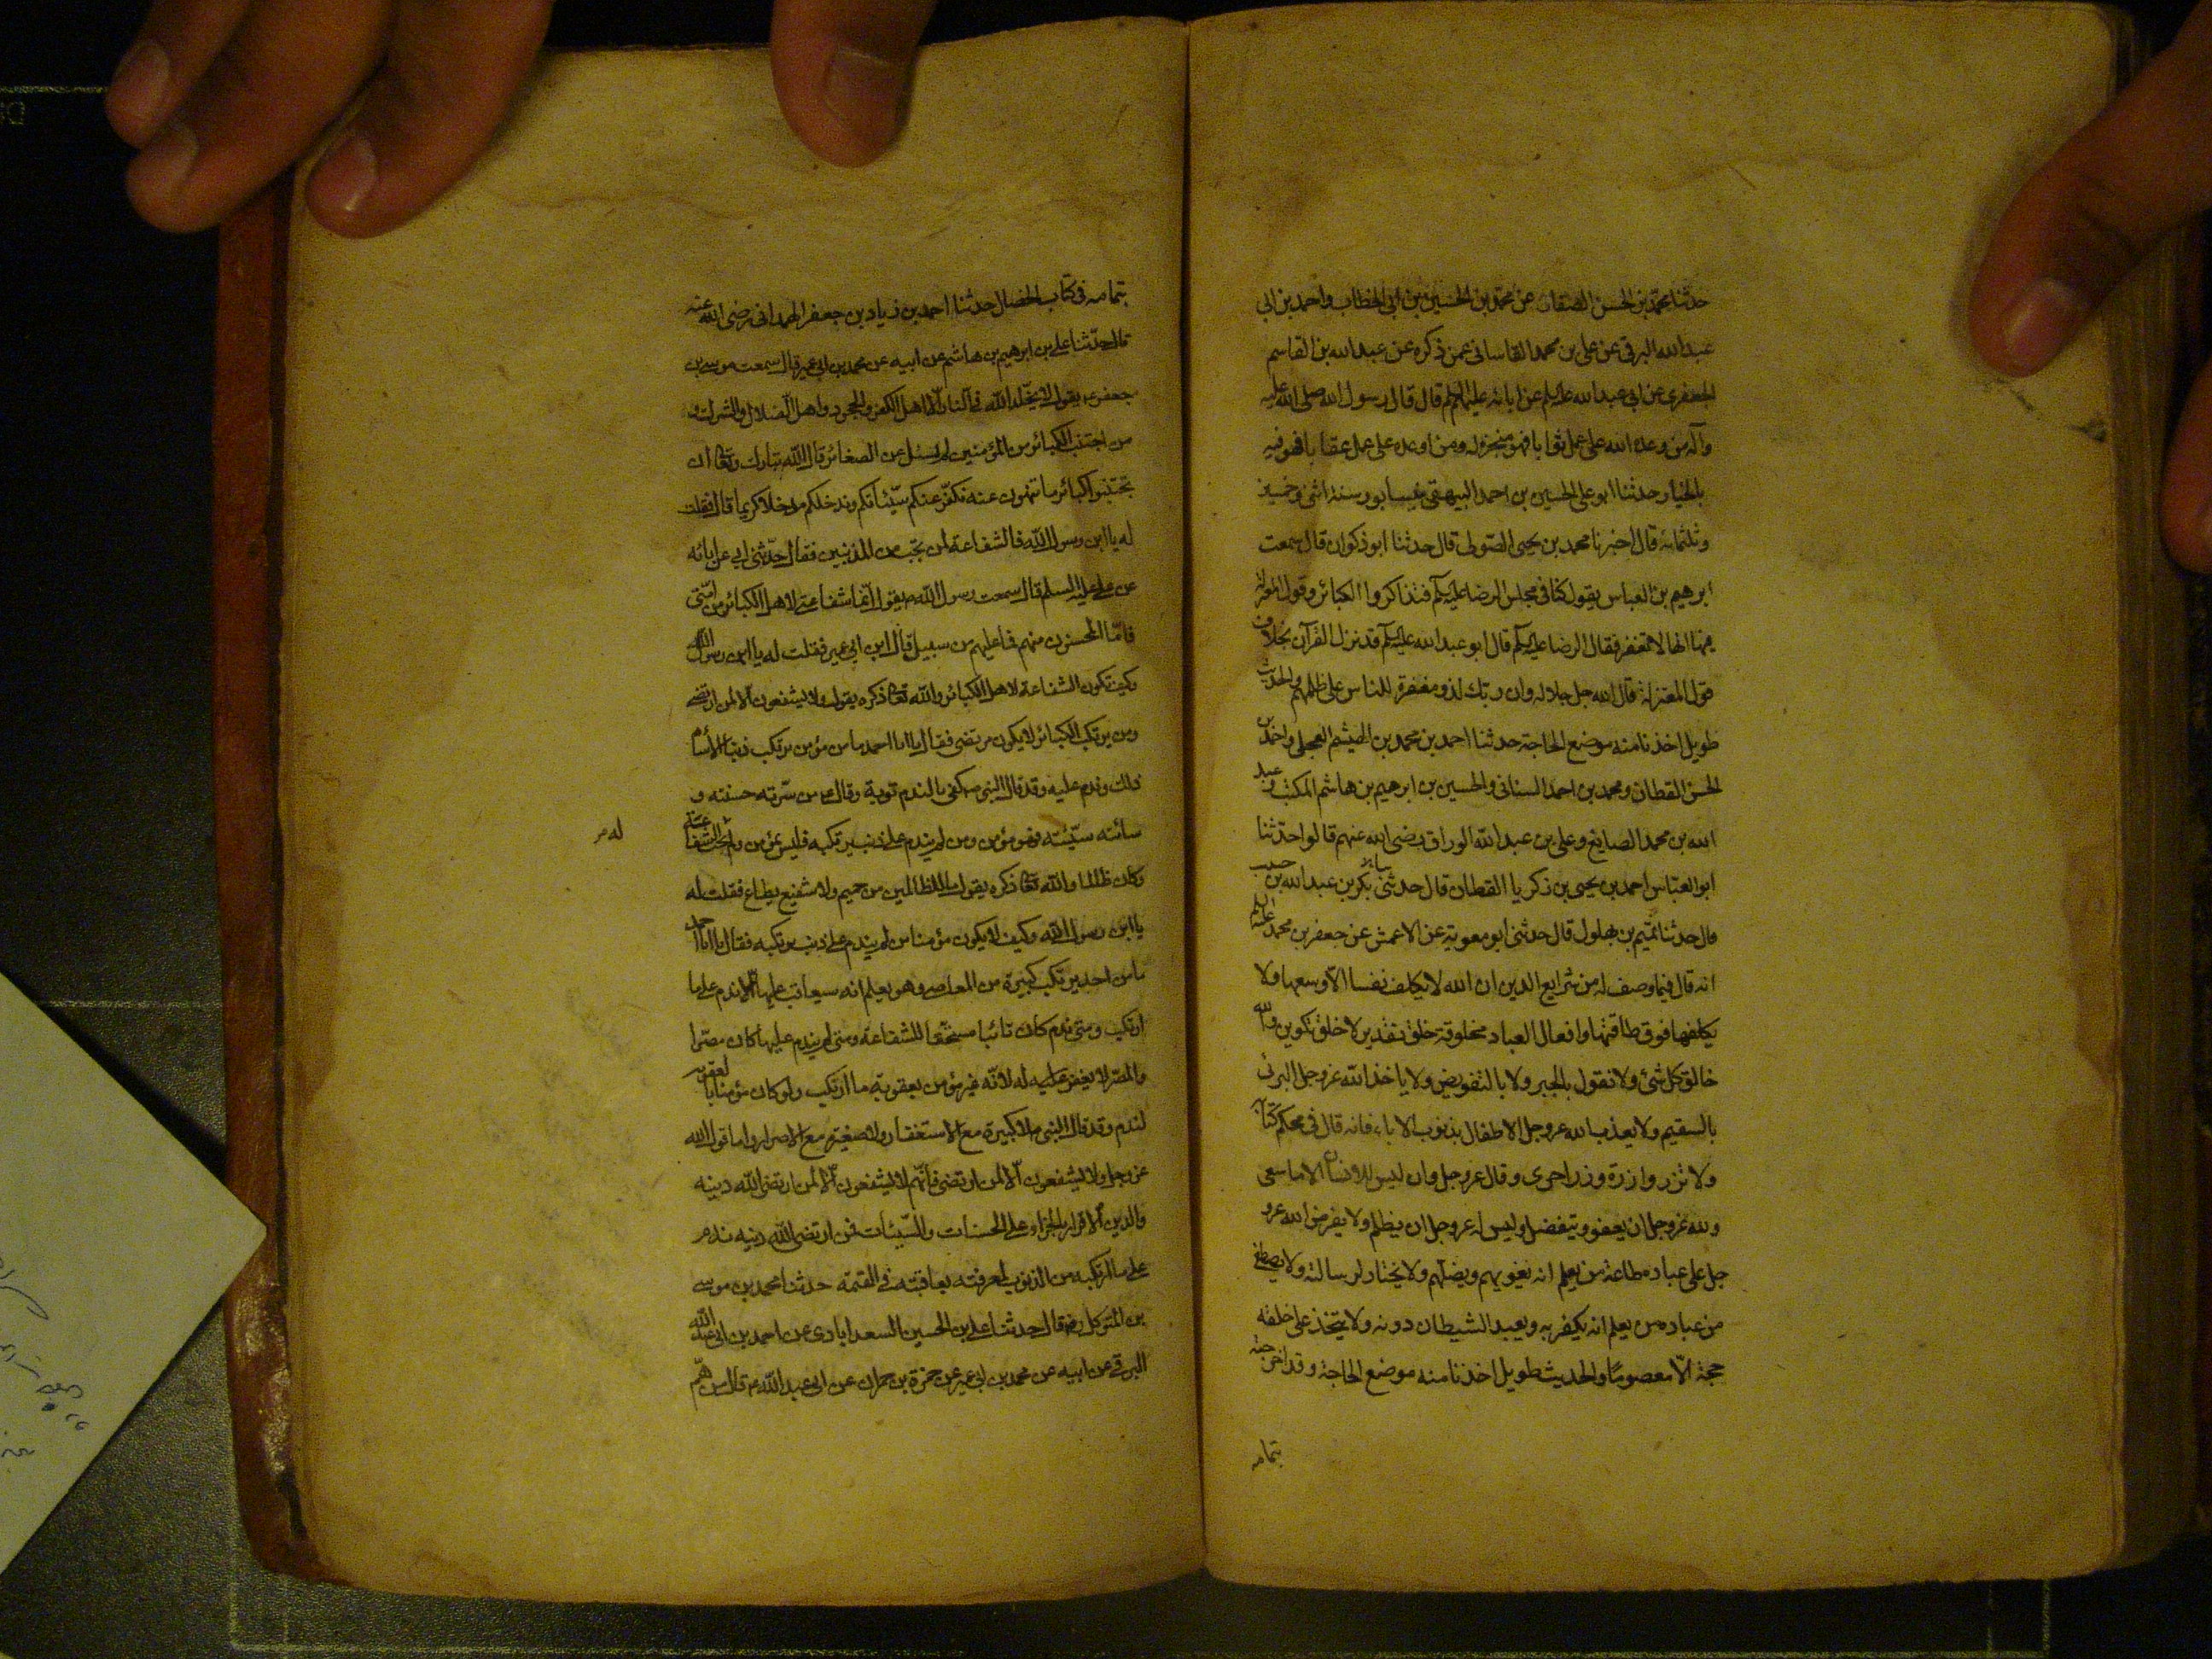 حدثنا محمد بن الحسن الصفار عن محمد بن الحسين بن ابي الخطاب واحمد بن ابي
عبد الله البرقي عن علي بن محمد القاساني عمن ذكره عن عبد الله بن القاسم
الجعفري عن ابي عبد الله عليه السلم عن ابائه عليهم السلم قال قال رسول الله صلى الله عليه
وآله من وعده الله على عمل ثوابا فهو منجزه له ومن اوعده على عمل عقابا فهو فيه
بالخيار حدثنا ابو علي الحسين بن احمد البيهقي بنيسابور سنة اثنى وخمسين
وثلثمائة قال اخبرنا محمد بن يحيى الصولي قال حدثنا ابو ذكوان قال سمعت
ابرهيم بن العباس يقول كنا في مجلس الرضا عليه السلم فتذاكروا الكبائر وقول المعتزلة
فيها انها لا تغفر فقال الرضا عليه السلم قال ابو عبد الله عليه السلم قد نزل القرآن بخلاف
قول المعتزلة قال الله جل جلاله وان ربك لذو مغفرة للناس على ظلمهم والحديث
طويل اخذنا منه موضع الحاجة حدثنا احمد بن محمد بن الهيثم العجلي واحمد بن
الحسن القطان ومحمد بن احمد السناني والحسين بن ابرهيم بن هاشم المكتب وعبد
الله بن محمد الصايغ وعلي بن عبد الله الوراق رضي الله عنهم قالوا حدثنا
ابو العباس احمد بن يحيى بن زكريا القطان قال حدثنى بكر بن عبد الله بن حبيب
قال حدثنا تميم بن بهلول قال حدثنى ابو معوية عن الاعمش عن جعفر بن محمد عليه السلم
انه قال فيما وصف له من شرايع الدين ان الله لا يكلف نفسا الا وسعها ولا
يكلفها فوق طاقتها وافعال العباد مخلوقة خلق تقدير لا خلق تكوين والله
خالق كل شئ ولا نقول بالجبر ولا بالتفويض ولا ياخذ الله عز وجل البرئ
بالسقيم ولا يعذب الله عز وجل الاطفال بذنوب الاباء فانه قال في محكم كتابه
ولا تزر وازرة وزر اخرى وقال عز وجل وان ليس للانسان الا ما سعى
ولله عز وجل ان يعفو ويتفضل وليس له عز وجل ان يظلم ولا يفرض الله عز و
جل على عباده طاعة من يعلم انه يغويهم ويضلهم ولا يختار لرسالته ولا يصطفى
من عباده من يعلم انه يكفر به ويعبد الشيطان دونه ولا يتخذ على خلقه
حجة الا معصوما والحديث طويل اخذنا منه موضع الحاجة وقد اخرجته
بتمامه
بتمامه في كتاب الخصال حدثنا احمد بن زياد بن جعفر الهمداني رضى الله عنه
قال حدثنا علي بن ابرهيم بن هاشم عن ابيه عن محمد بن ابي عمير قال سمعت موسى بن
جعفر ع يقول لا يخلد الله في النار الا اهل الكفر والجحود واهل الضلال والشرك و
من اجتنب الكبائر من المؤمنين لم يسئل عن الصغائر قال الله تبارك وتعالى ان
تجتنبوا كبائر ما تنهون عنه نكفر عنكم سيئاتكم وندخلكم مدخلا كريما قال فقلت
له يا ابن رسول الله فالشفاعة لمن تجب من المذنبين فقال حدثنى ابي عن ابائه
عن علي عليه السلم قال سمعت رسول الله ص يقول انما شفاعتى لاهل الكبائر من امتى
فاما المحسنون منهم فما عليهم من سبيل قال ابن ابي عمير فقلت له يا ابن رسول الله
وكيف تكون الشفاعة لاهل الكبائر والله تعالى ذكره يقول ولا يشفعون الا لمن ارتضى
ومن يرتكب الكبائر لا يكون مرتضى فقال يا ابا احمد ما من مؤمن يرتكب ذنبا الا ساءه
ذلك وندم عليه وقد قال النبي ص كفى بالندم توبة وقال ع من سرته حسنته و
سائته سيئته فهو مؤمن ومن لم يندم على ذنب يرتكبه فليس بمؤمن ولم تجب له الشفاعة
له م
وكان ظالما والله تعالى ذكره يقول ما للظالمين من حميم ولا شفيع يطاع فقلت له
يا ابن رسول الله وكيف لا يكون مؤمنا من لم يندم على ذنب يرتكبه فقال يا ابا احمد
ما من احد يرتكب كبيرة من المعاصي وهو يعلم انه سيعاقب عليها الا ندم على ما
ارتكب ومتى ندم كان تائبا مستحقا للشفاعة ومتى لم يندم عليها كان مصرا
والمصر لا يغفر له لانه غير مؤمن بعقوبة ما ارتكب ولو كان مؤمنا بالعقوبة
لندم وقد قال النبي ص لا كبيرة مع الاستغفار ولا صغيرة مع الاصرار واما قول الله
عز وجل ولا يشفعون الا لمن ارتضى فانهم لا يشفعون الا لمن ارتضى الله دينه
والدين الاقرار بالجزاء على الحسنات والسيئات فمن ارتضى الله دينه ندم
على ما ارتكبه من الذنوب لمعرفته بعاقبته في القيمة حدثنا محمد بن موسى
بن المتوكل رض قال حدثنا علي بن الحسين السعدابادي عن احمد بن ابي عبد الله
البرقي عن ابيه عن محمد بن ابي عمير عن حمزة بن حمران عن ابي عبد الله ع قال من هم